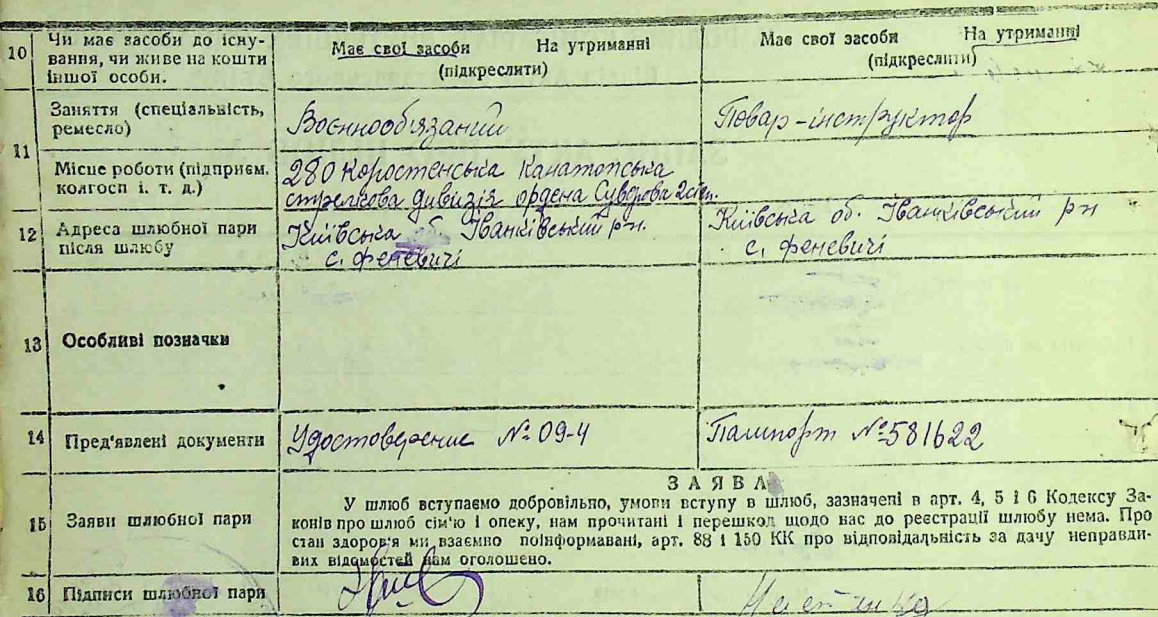 10 Чи має засоби до існу-
вання, чи живе на кошти
іншої особи.
Має свої засоби На утриманні
(підкреслити)
Має свої засоби На утриманні
(підкреслити)
11 Заняття (спеціальність,
ремесло)
Воєннообязаний
Повар-інструктор
Місце роботи (підприєм.
колгосп і. т. д.)
280 Коростенська Канатопська
стрелкова дивизія ордена Суворова 2 степ.
12 Адреса шлюбної пари
після шлюбу
Київська об. Іванківський р-н.
с. феневичі
Київська об. Іванківський р-н
с. феневичі
13 Особливі позначки
14 Пред'явлені документи
Удостоверение № 09-4
Пашпорт № 581622
15 Заяви шлюбної пари
ЗАЯВА
У шлюб вступаємо добровільно, умови вступу в шлюб, зазначені в арт. 4, 5 і 6 Кодексу За-
конів про шлюб сім'ю і опеку, нам прочитані і перешкод щодо нас до реєстрації шлюбу нема. Про
стан здоров'я ми взаємно поінформавані, арт. 88 і 150 КК про відповідальність за дачу неправди-
вих відомостей нам оголошено.
16 Підписи шлюбної пари